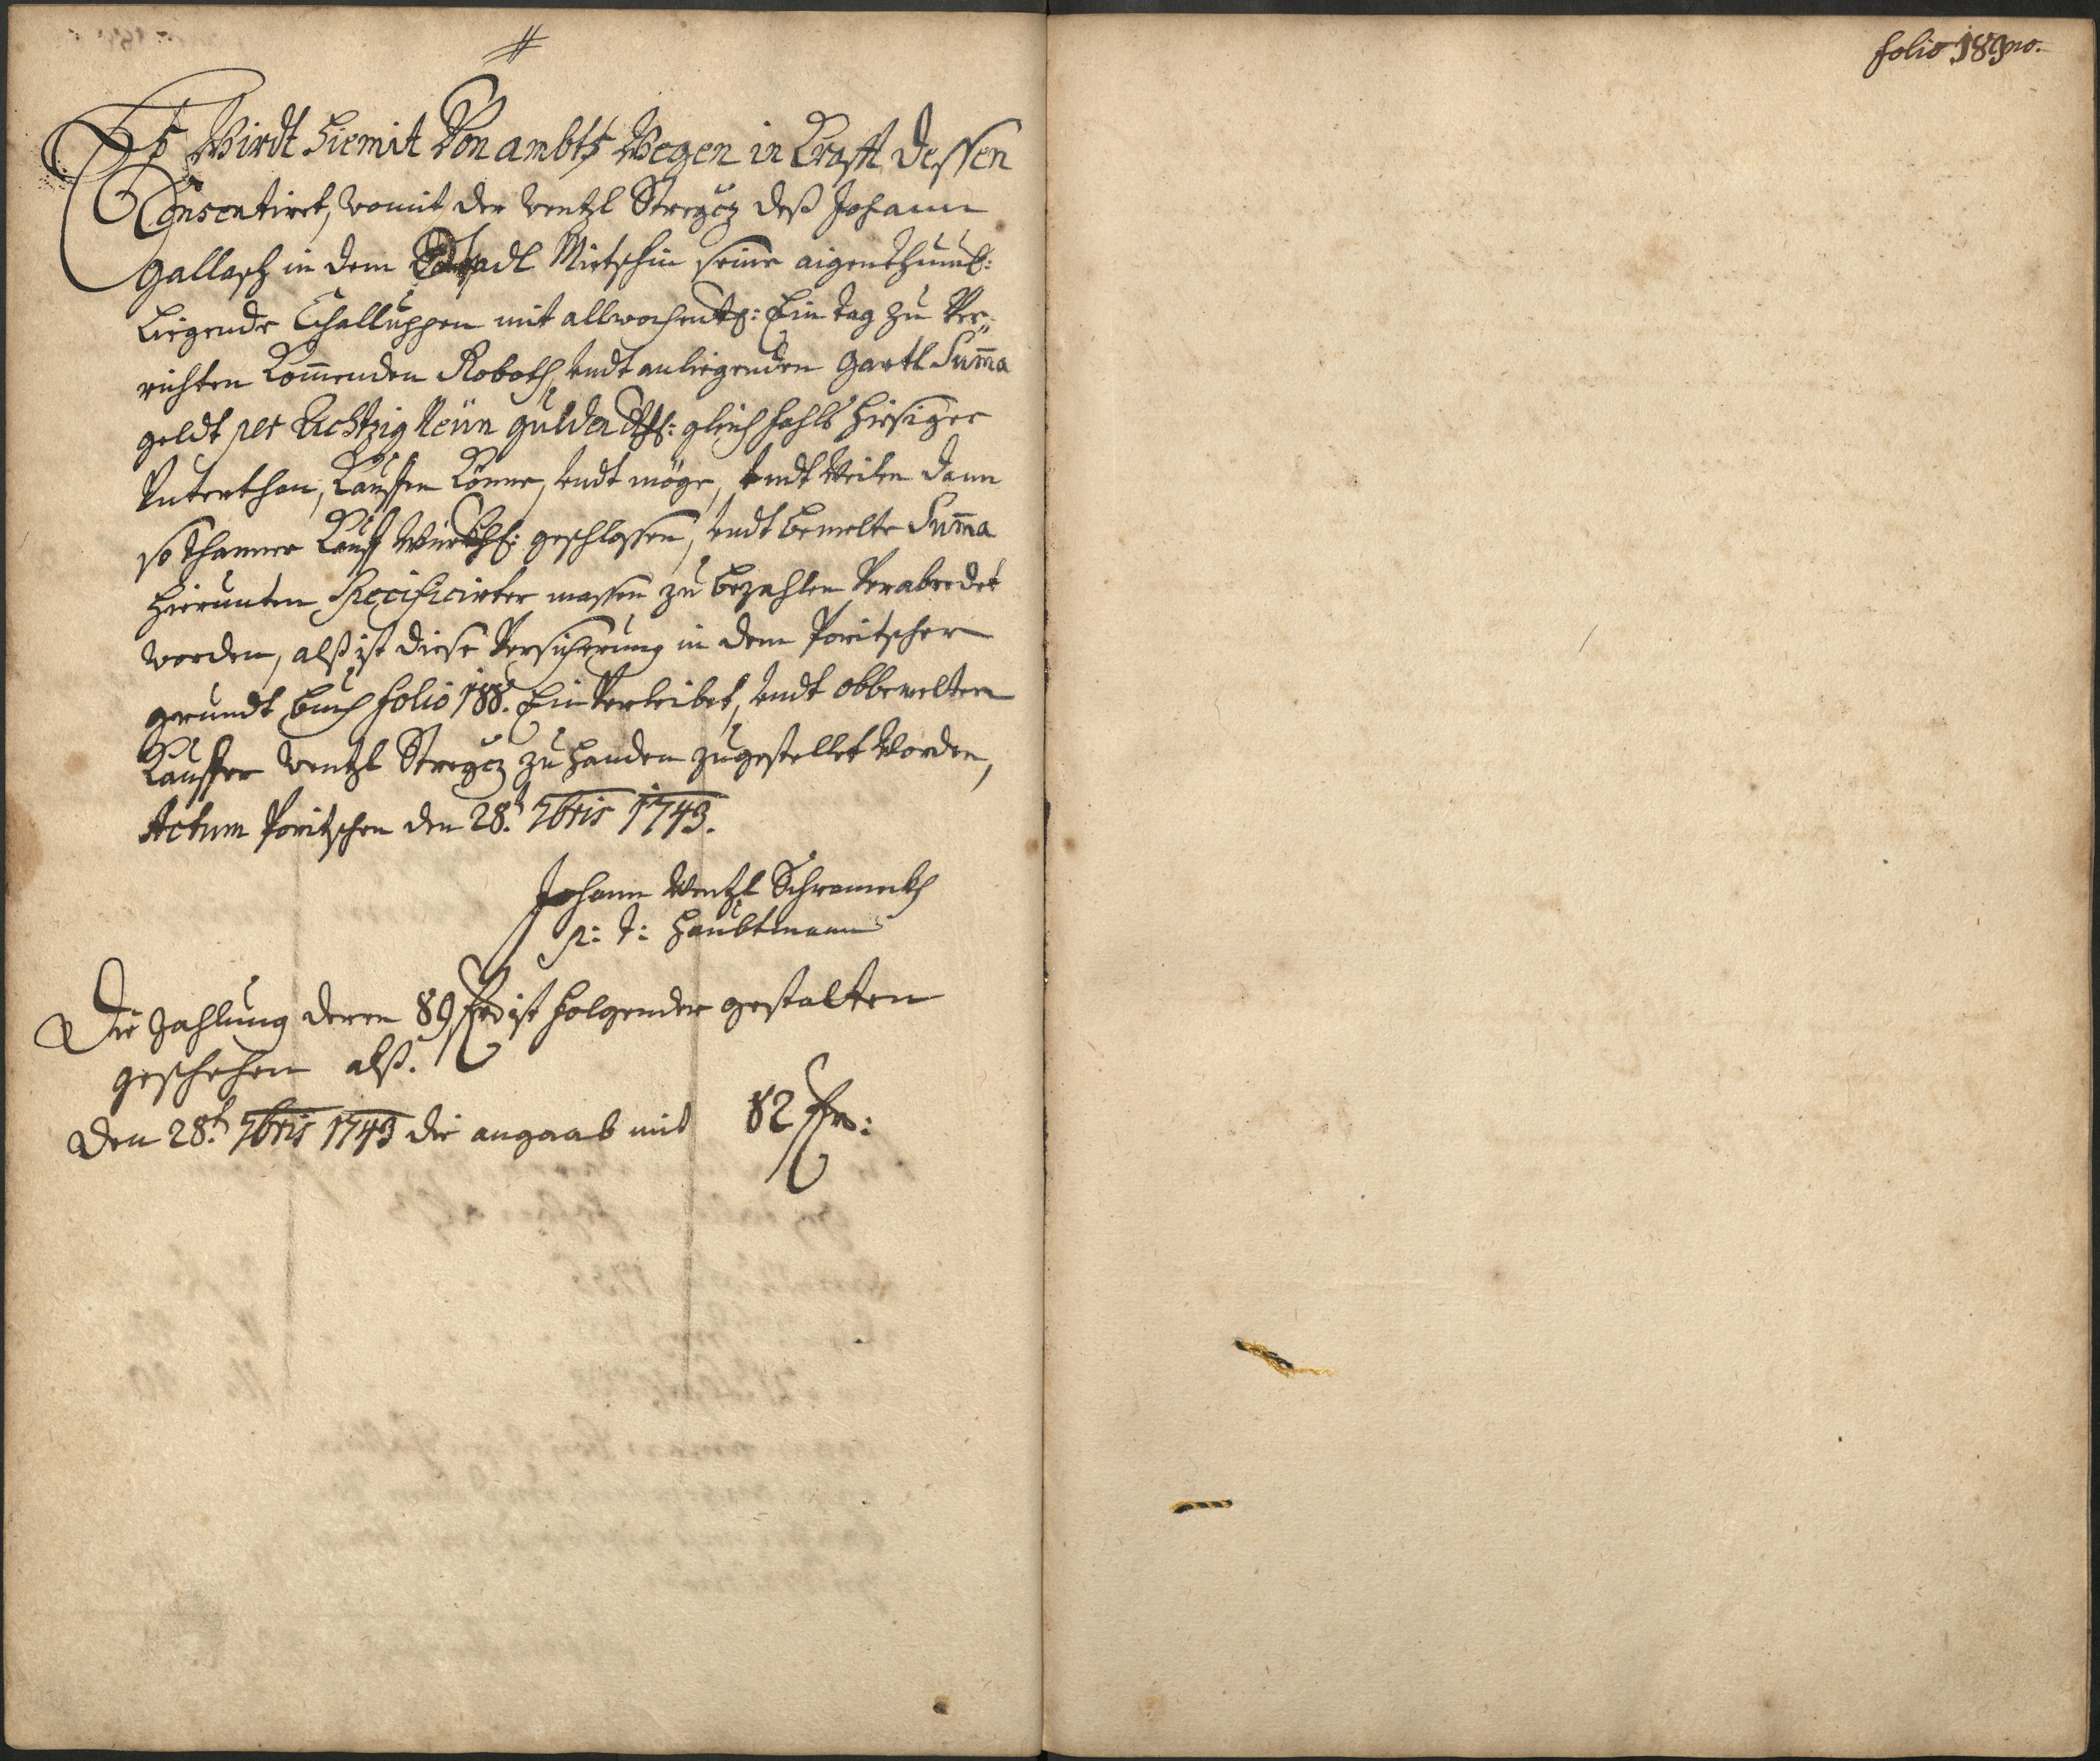 #
Es Wirdt hiemit Von ambts Wegen in Krafft dessen
Consentiret, womit der Wentzl Stregcz deß Johann
Gallasch in dem Städtl Mietschin seine aigenthuml:
liegende Challuppen mit allwochentl: Ein tag zu Ver„
richten kommenden Roboth, undt anliegenden Gartl Suma
geldt per Achtzig Neün gulden gleich fahls hiesiger
Unterthan, Kauffen könne, undt möge, undt Weilen dann
so thanner Kauff würkhl: geschlossen, undt bemelte Suma
hierunten Specificirter massen zu bezahlen Verabredet
worden, alß ist diese Versicherung in dem Poritscher
grundt buch folio 188. Ein Verleibet, undt obbemelten
Kauffer Wentzl Stregcz zu handen zugestellet Worden,
Actum Poritschen den 28.t 7bris 1743.
Johann Wentzl Schrameckh
p: t: Haubtmann
Die Zahlung deren 89 fr ist folgender gestalten
geschehen alß.
Den 28.t 7bris 1743 die angaab mit 82 fr:
folio 189no.